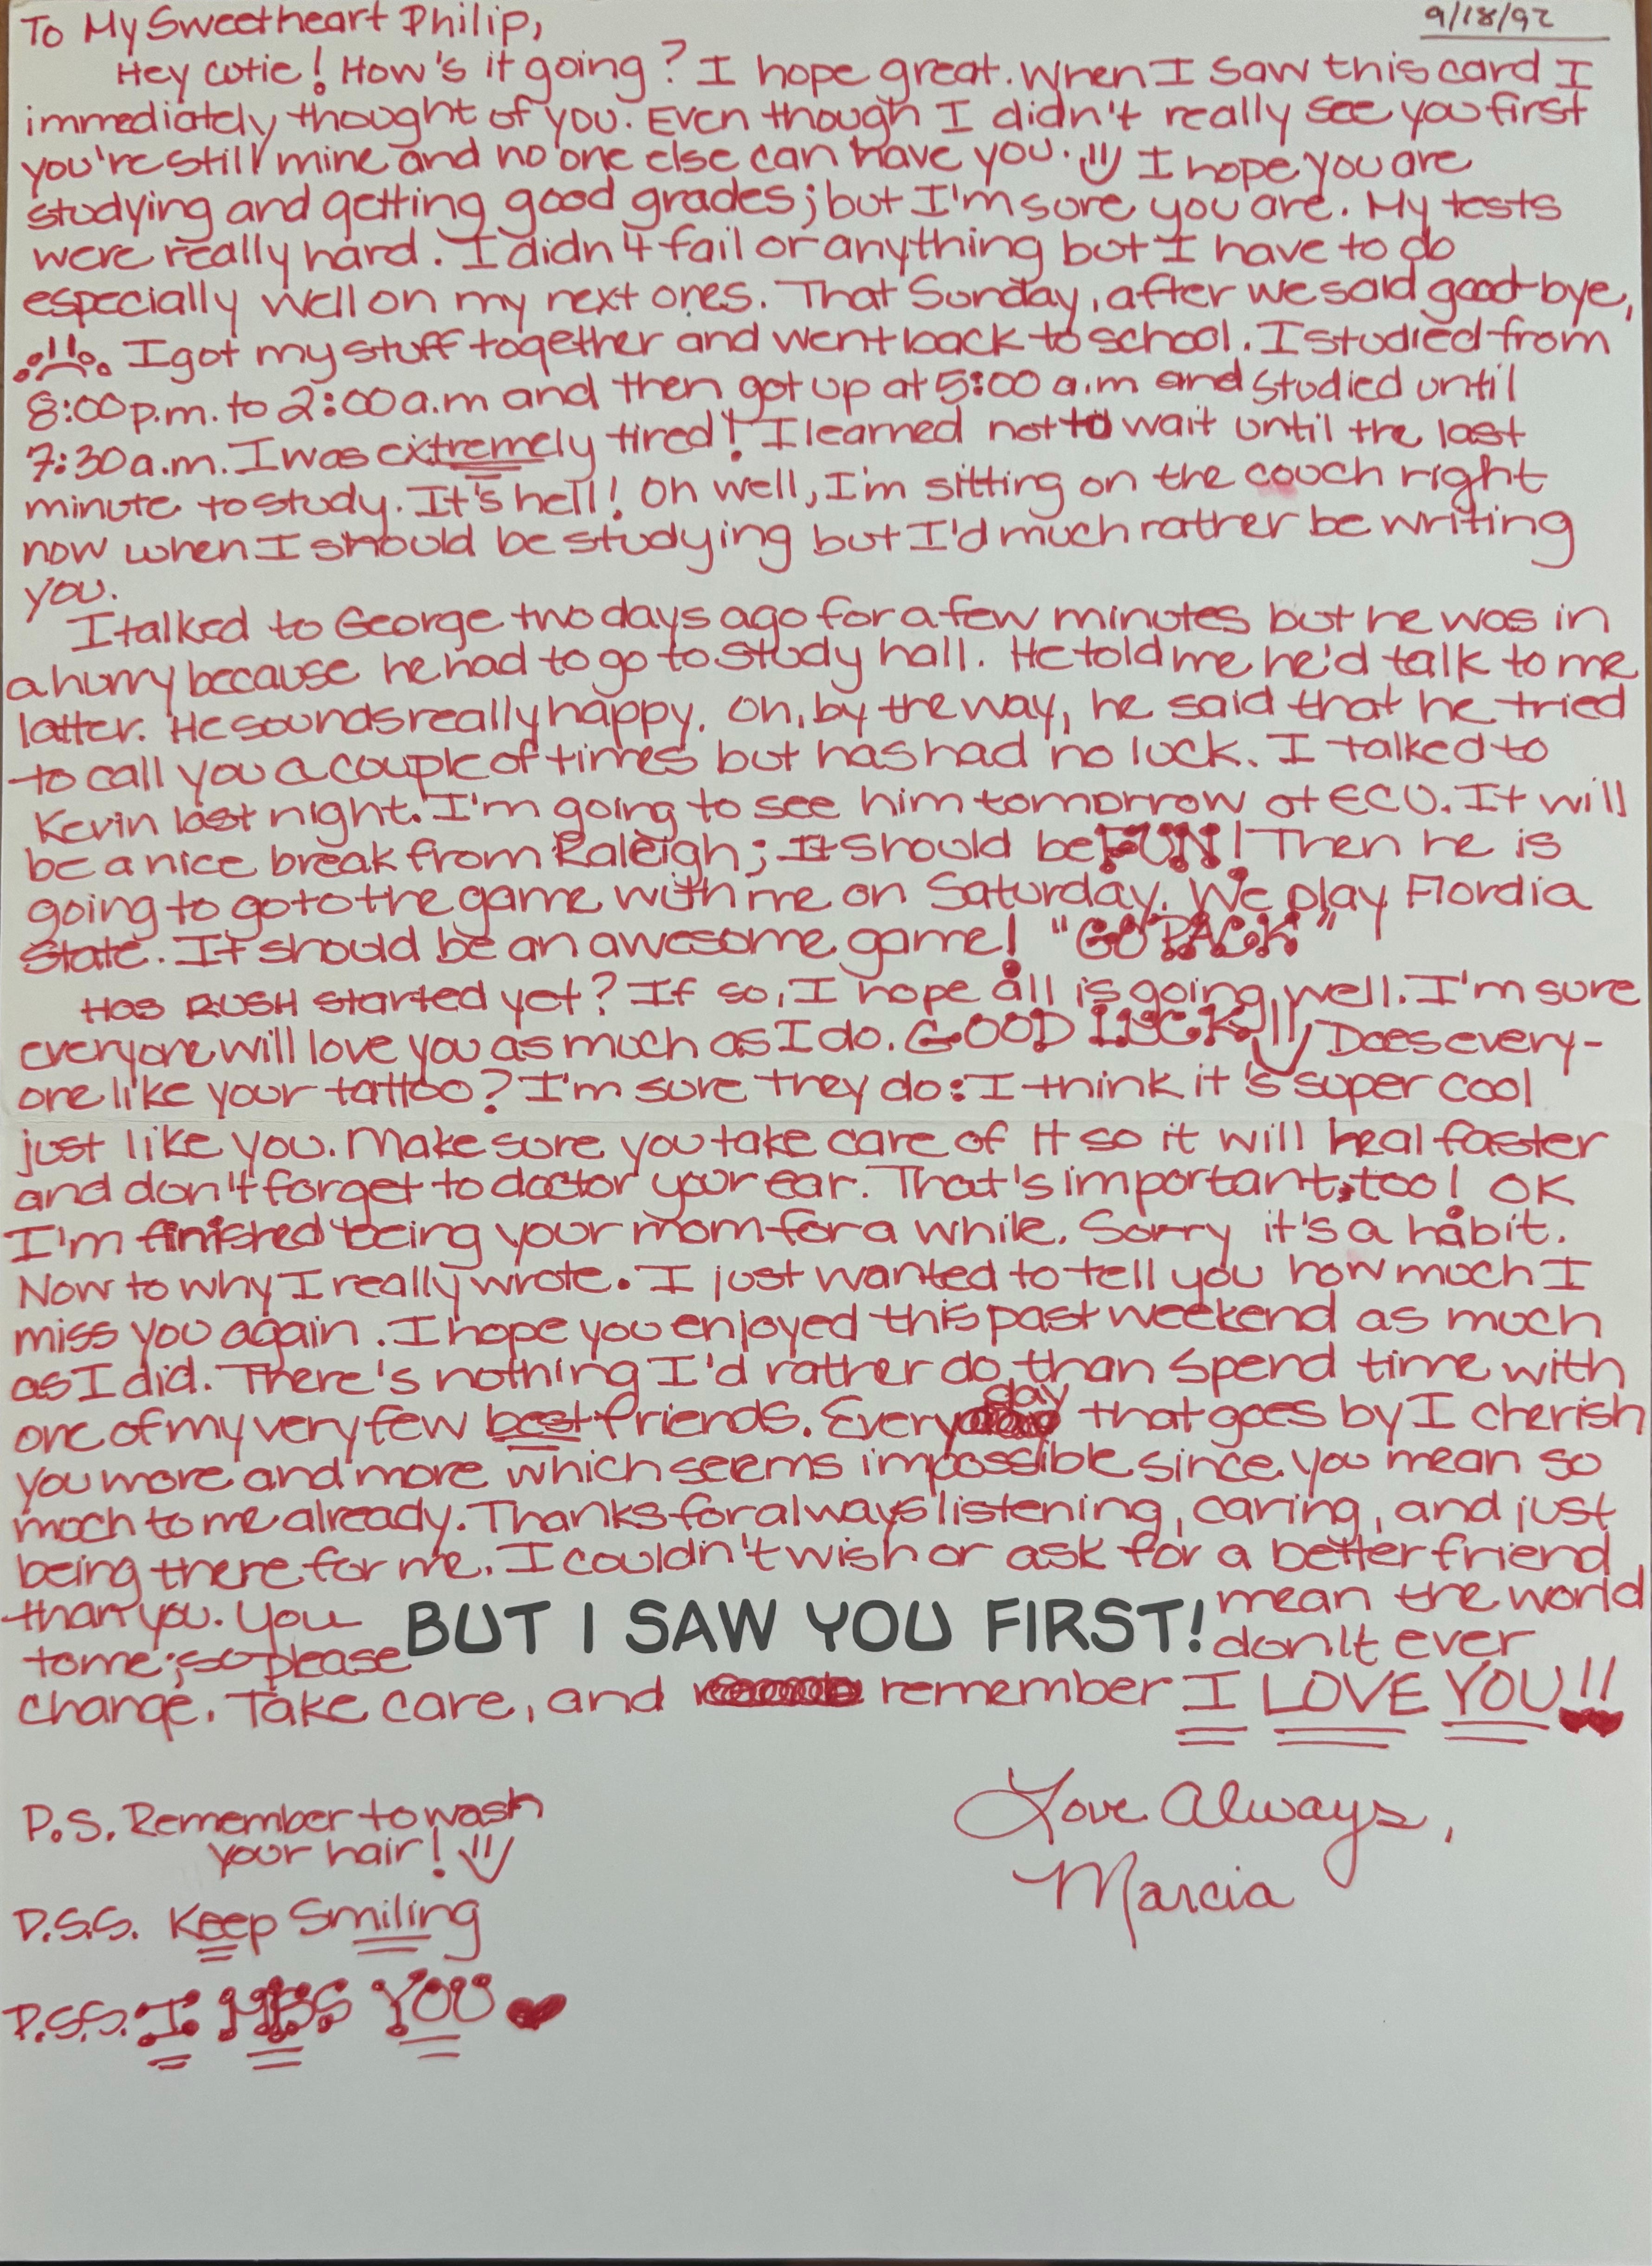 9/18/92
To My Sweetheart Philip,
Hey cutie! How's it going? I hope great. When I saw this card I
immediately thought of you. Even though I didn't really see you first
you're still mine and no one else can have you. I hope you are
studying and getting good grades; but I'm sure you are. My tests
were really hard. I didn't fail or anything but I have to do
especially well on my next ones. That Sunday, after we said good-bye,
I got my stuff together and went back to school. I studied from
8:00 p.m. to 2:00 a.m and then got up at 5:00 a.m and studied until
7:30 a.m. I was extremely tired! I learned not to wait until the last
minute to study. It's hell! Oh well, I'm sitting on the couch right
now when I should be studying but I'd much rather be writing
you.
I talked to George two days ago for a few minutes but he was in
a hurry because he had to go to study hall. He told me he'd talk to me
latter. He sounds really happy. Oh, by the way, he said that he tried
to call you a couple of times but has had no luck. I talked to
Kevin last night. I'm going to see him tomorrow at ECU. It will
be a nice break from Raleigh; It should be FUN! Then he is
going to go to the game with me on Saturday. We play Flordia
State. It should be an awesome game! "GO PACK"
Has RUSH started yet? If so, I hope all is going well. I'm sure
everyone will love you as much as I do. GOOD LUCK!! Does every-
one like your tattoo? I'm sure they do: I think it's super cool
just like you. Make sure you take care of it so it will heal faster
and don't forget to doctor your ear. That's important, too! OK
I'm finished being your mom for a while. Sorry it's a habit.
Now to why I really wrote. I just wanted to tell you how much I
miss you again. I hope you enjoyed this past weekend as much
as I did. There's nothing I'd rather do than spend time with
one of my very few best friends. Every day that goes by I cherish
you more and more which seems impossible since you mean so
much to me already. Thanks for always listening, caring, and just
being there for me. I couldn't wish or ask for a better friend
than you. You mean the world
BUT I SAW YOU FIRST!
to me; so please don't ever
change. Take care, and remember I LOVE YOU!!
Love Always,
Marcia
P.S. Remember to wash
your hair!
P.S.S. Keep Smiling
P.S.S. I MISS YOU